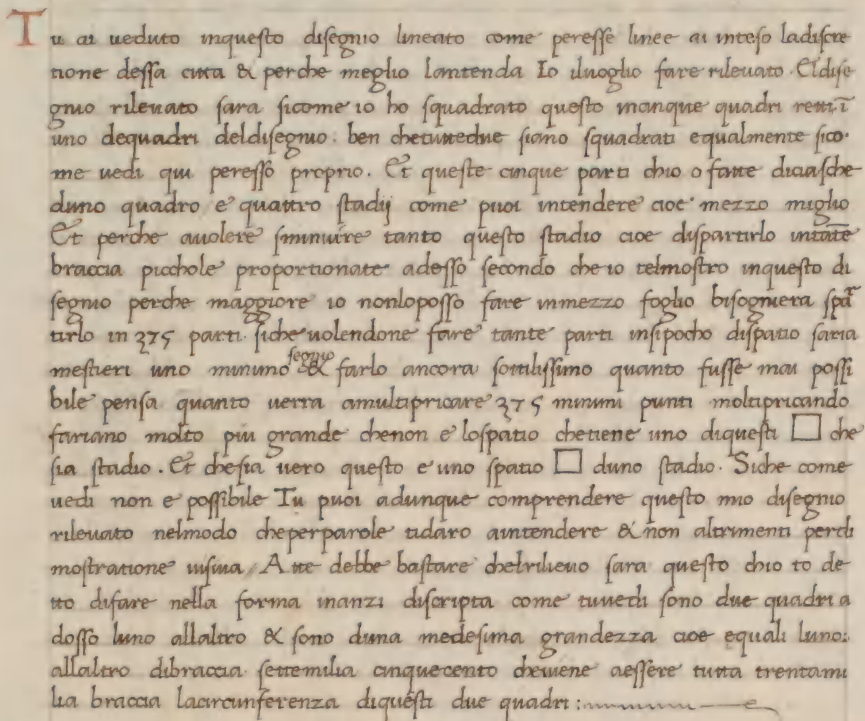 Tu ai ueduto inquesto disegnio lineato come peresse linee ai inteso ladiscre
tione dessa citta & perche meglio lantenda Io iluoglio fare rileuato. Eldise
gnio rileuato sara sicome io ho squadrato questo incinque quadri remĩ
uno dequadri deldisegnio. ben chetuttedue siano squadrati equalmente sico
me uedi qui peresso proprio. Et queste cinque parti chio o fatte diciasche
duno quadro e quattro stadij come puoi intendere cioe mezzo miglio
Et perche auolere sminuire tanto questo stadio cioe dispartirlo intāte
braccia picchole proportionate adesso secondo che io telmostro inquesto di
segnio perche maggiore io nonloposso fare inmezzo foglio bisogniera spa
tirlo in 375 parti. siche uolendone fare tante parti insipocho dispatio saria
mestieri uno minimo segnio & farlo ancora sottilissimo quanto fusse mai possi
bile pensa quanto uerra amultipricare 375 minimi punti moltipricando
fariano molto piu grande chenon e lospatio chetiene uno diquesti □ che
sia stadio. Et chesia uero questo e uno spatio □ duno stadio. Siche come
uedi non e possibile Tu puoi adunque comprendere questo mio disegnio
rileuato nelmodo cheperparole tidaro aintendere & non altrimenti perdi
mostratione uisiua. Atte debbe bastare chelrilieuo sara questo chio to de
tto difare nella forma inanzi discripta come tuuedi sono due quadri a
dosso luno allaltro & sono duna medesima grandezza cioe equali luno:
allaltro dibraccia settemilia cinquecento cheuiene aessere tutta trentami
lia braccia lacircunferenza diquesti due quadri: